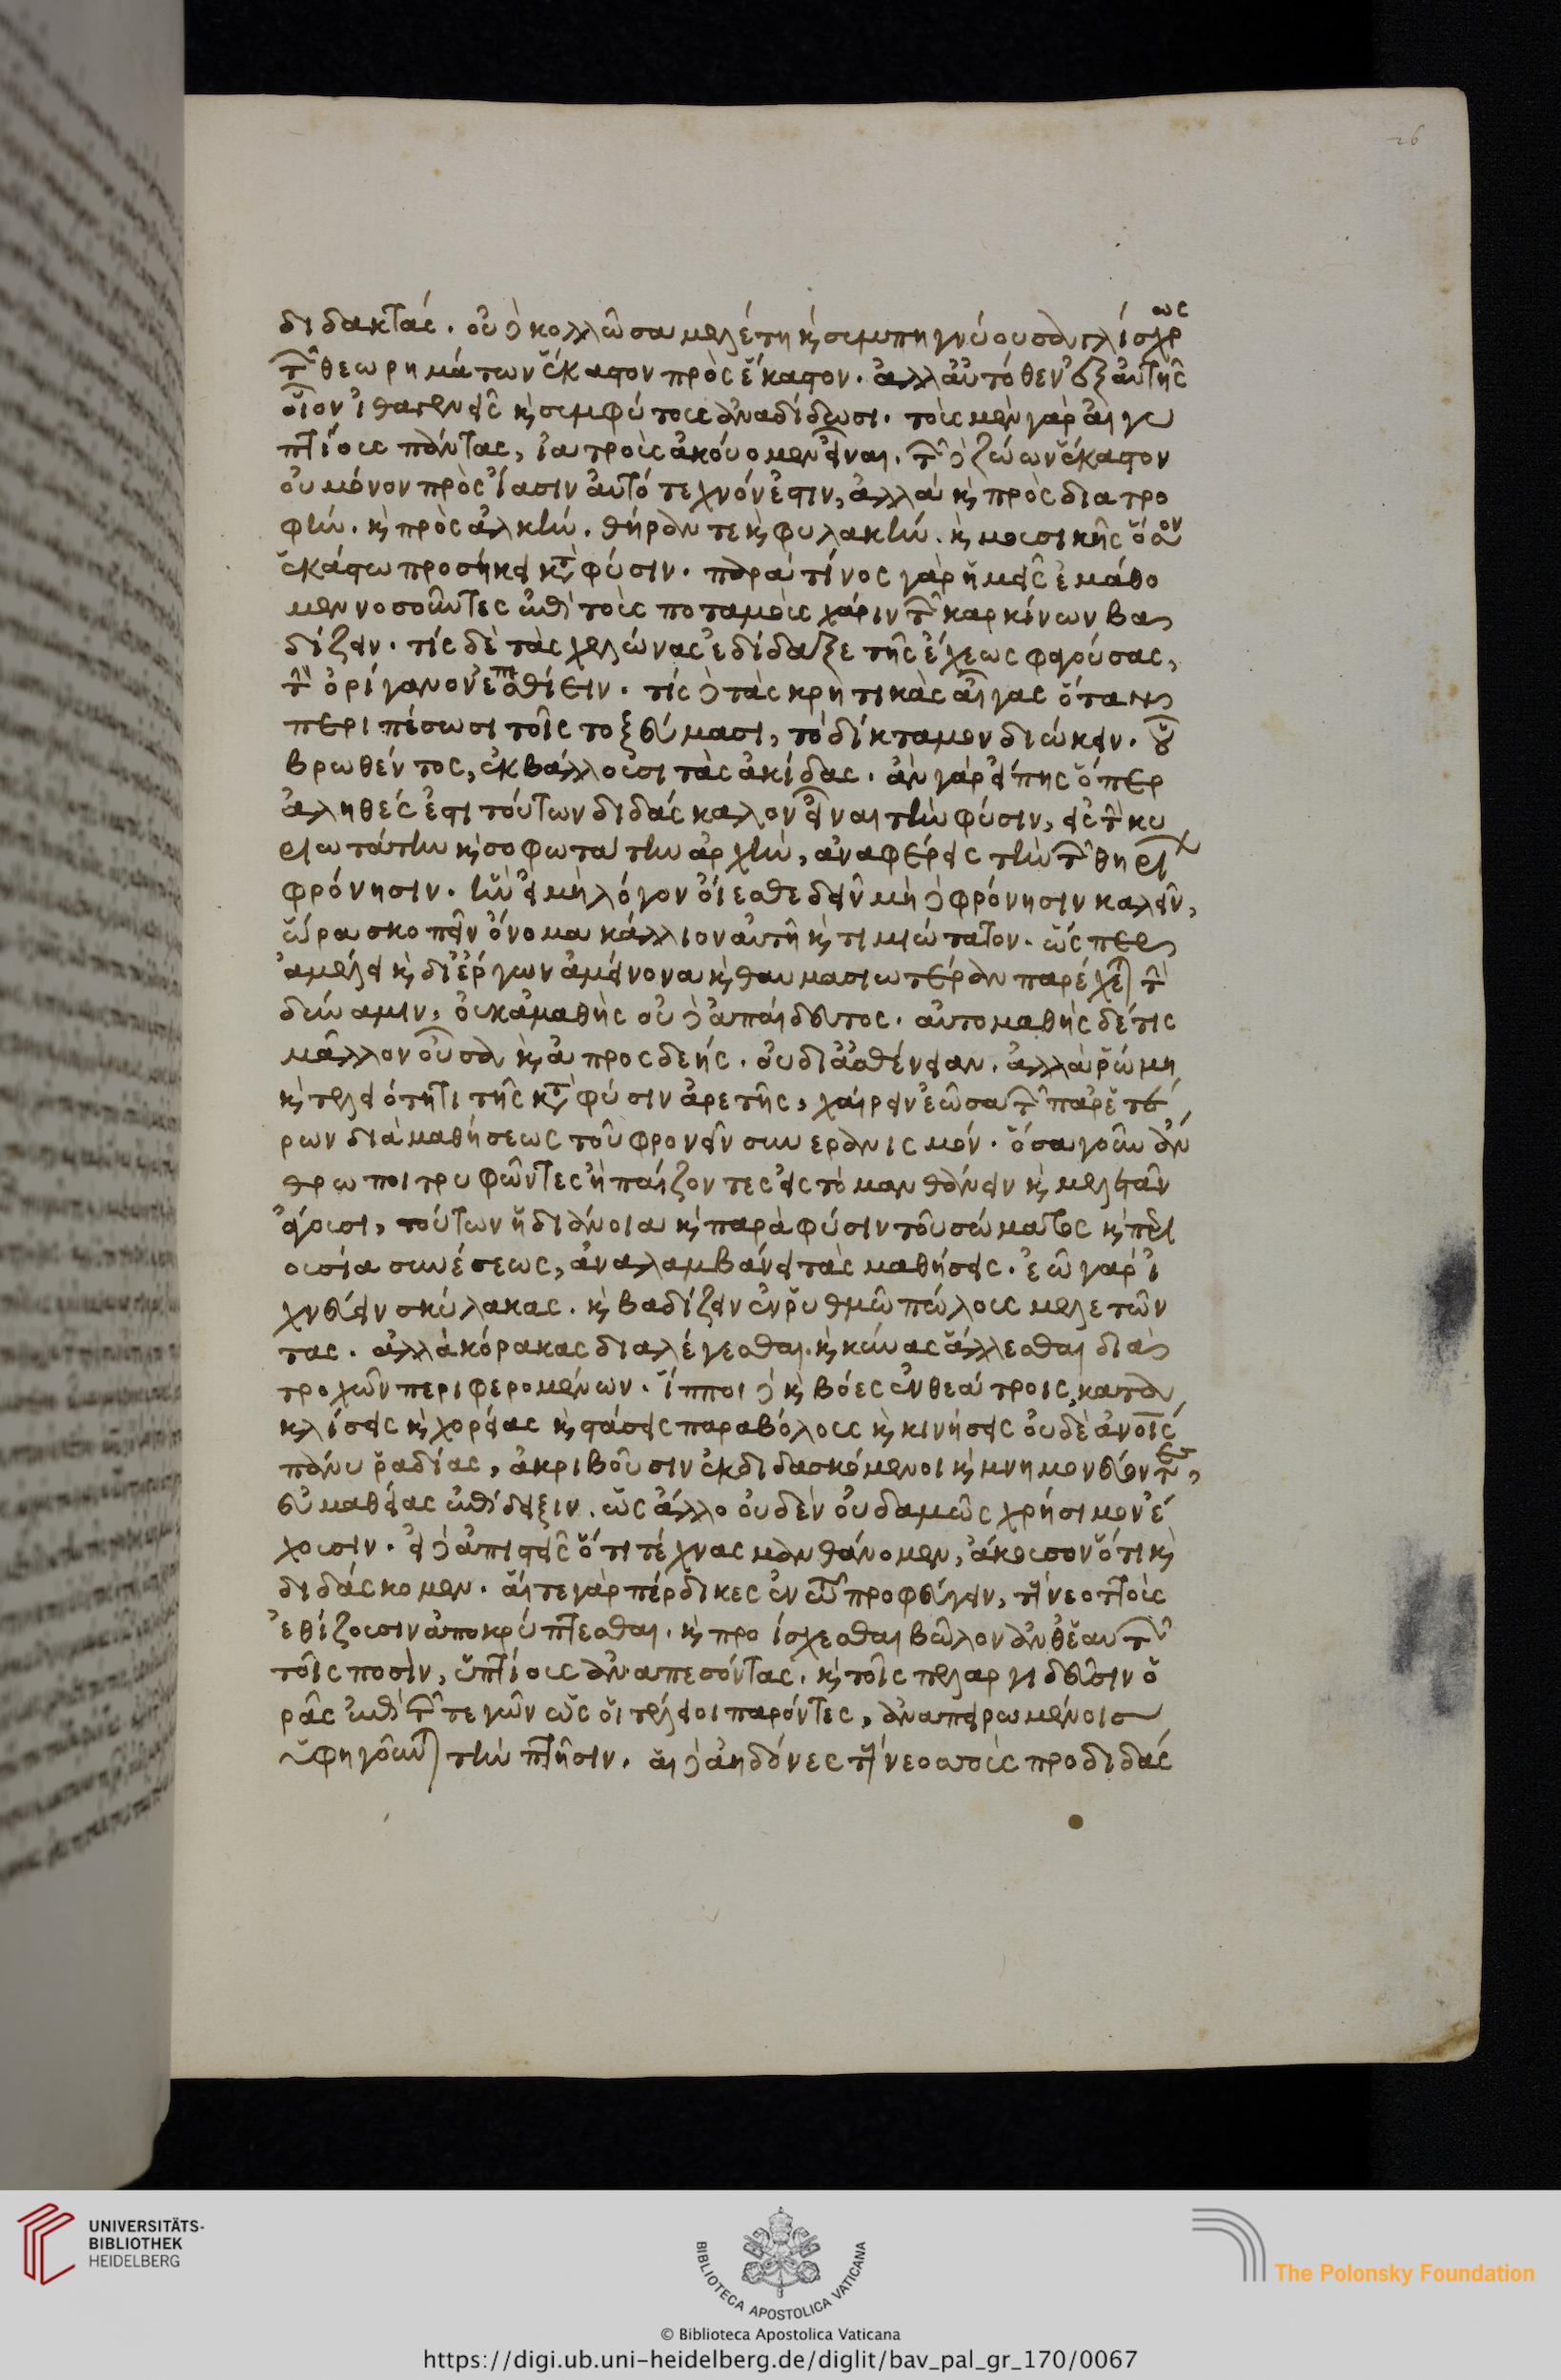 26
διδακτάς. οὐδὲ κολλῶσα μελέτη καὶ συμπηγνύουσα γλίσχρως
τῶν θεωρημάτων ἕκαστον πρὸς ἕκαστον. ἀλλ' αὐτόθεν ἐξ αὐτῆς
οἷον ἰθαγενεῖς καὶ συμφύτους ἀναδίδωσι. τοὺς μὲν γὰρ αἰγυ
πτίους πάντας, ἰατροὺς ἀκούομεν εἶναι. τῶν δὲ ζώων ἕκαστον
οὐ μόνον πρὸς ἴασιν αὐτότεχνόν ἐστιν, ἀλλὰ καὶ πρὸς διατρο
φήν. καὶ πρὸς ἀλκήν. θήραν τε καὶ φυλακήν. καὶ μουσικῆς ὅσον
ἑκάστω προσήκει κατὰ φύσιν. παρὰ τίνος γὰρ ἡμεῖς ἐμάθο
μεν νοσοῦντες ἐπὶ τοὺς ποταμοὺς χάριν τῶν καρκίνων βα
δίζειν. τίς δὲ τὰς χελώνας ἐδίδαξε τῆς ἔχεως φαγούσας,
τὴν ὀρίγανον ἐπεσθίειν. τίς δὲ τὰς κρητικὰς αἶγας ὅταν
περιπέσωσι τοῖς τοξεύμασι, τὸ δίκταμον διώκειν. οὗ
βρωθέντος, ἐκβάλλουσι τὰς ἀκίδας. ἂν γὰρ εἴπης ὅπερ
ἀληθές ἐστι τούτων διδάσκαλον εἶναι τὴν φύσιν, εἰς τὴν κυ
ριωτάτην καὶ σοφωτάτην ἀρχὴν, ἀναφέρεις τὴν τῶν θηρίων
φρόνησιν. ἣν εἰ μὴ λόγον οἴεσθε δεῖν μὴ δὲ φρόνησιν καλεῖν,
ὥρα σκοπεῖν ὄνομα κάλλιον αὐτῆ καὶ τιμιώτατον. ὥσπερ
ἀμέλει καὶ δι' ἔργων ἀμείνονα καὶ θαυμασιωτέραν παρέχεται τὴν
δύναμιν, οὐκ ἀμαθὴς οὐδὲ ἀπαίδευτος. αὐτομαθὴς δέ τις
μᾶλλον οὖσα καὶ ἀπροσδεής. οὐ δι' ἀσθένειαν. ἀλλὰ ῥώμη
καὶ τελειότητι τῆς κατὰ φύσιν ἀρετῆς, χαίρειν ἐῶσα τὸν παρ' ἑτέ
ρων διὰ μαθήσεως τοῦ φρονεῖν συνερανισμόν. ὅσα γοῦν ἄν
θρωποι τρυφῶντες ἢ παίζοντες εἰς τὸ μανθάνειν καὶ μελετᾶν
ἄγουσι, τούτων ἡ διάνοια καὶ παρὰ φύσιν τοῦ σώματος καὶ περι
ουσία συνέσεως, ἀναλαμβάνει τὰς μαθήσεις. ἐῶ γὰρ ἰ
χνεύειν σκύλακας. καὶ βαδίζειν ἐν ῥυθμῶ πώλους μελετῶν
τας. ἀλλὰ κόρακας διαλέγεσθαι. καὶ κύνας ἅλλεσθαι διὰ
τροχῶν περιφερομένων. ἵπποι δὲ καὶ βόες ἐν θεάτροις, κατα
κλίσεις καὶ χορείας καὶ στάσεις παραβόλους καὶ κινήσεις οὐδὲ ἀν\οις
πάνυ ῥαδίας, ἀκριβοῦσιν ἐκδιδασκόμενοι καὶ μνημονεύοντες,
εὐμαθείας ἐπίδειξιν. ὡς ἄλλο οὐδὲν οὐδαμῶς χρήσιμον ἔ
χουσιν. εἰ δὲ ἀπιστεῖς ὅτι τέχνας μανθάνομεν, ἄκουσον ὅτι καὶ
διδάσκομεν. αἵ τε γὰρ πέρδικες ἐν τῶ προφεύγειν, τοὺς νεοττοὺς
ἐθίζουσιν ἀποκρύπτεσθαι. καὶ προίσχεσθαι βῶλον ἀνθ' ἑαυτῶν
τοῖς ποσὶν, ὑπτίους ἀναπεσόντας. καὶ τοῖς πελαργιδεῦσιν ὁ
ρᾶς ἐπὶ τῶν τεγῶν ὡς οἱ τέλειοι παρόντες, ἀναπειρωμένοις
ὑφηγοῦνται τὴν πτῆσιν. αἱ δὲ ἀηδόνες τοὺς νεοσσοὺς προδιδάς
UNIVERSITÄTS-
BIBLIOTHEK
HEIDELBERG
BIBLIOTECA APOSTOLICA VATICANA
The Polonsky Foundation
© Biblioteca Apostolica Vaticana
https://digi.ub.uni-heidelberg.de/diglit/bav_pal_gr_170/0067